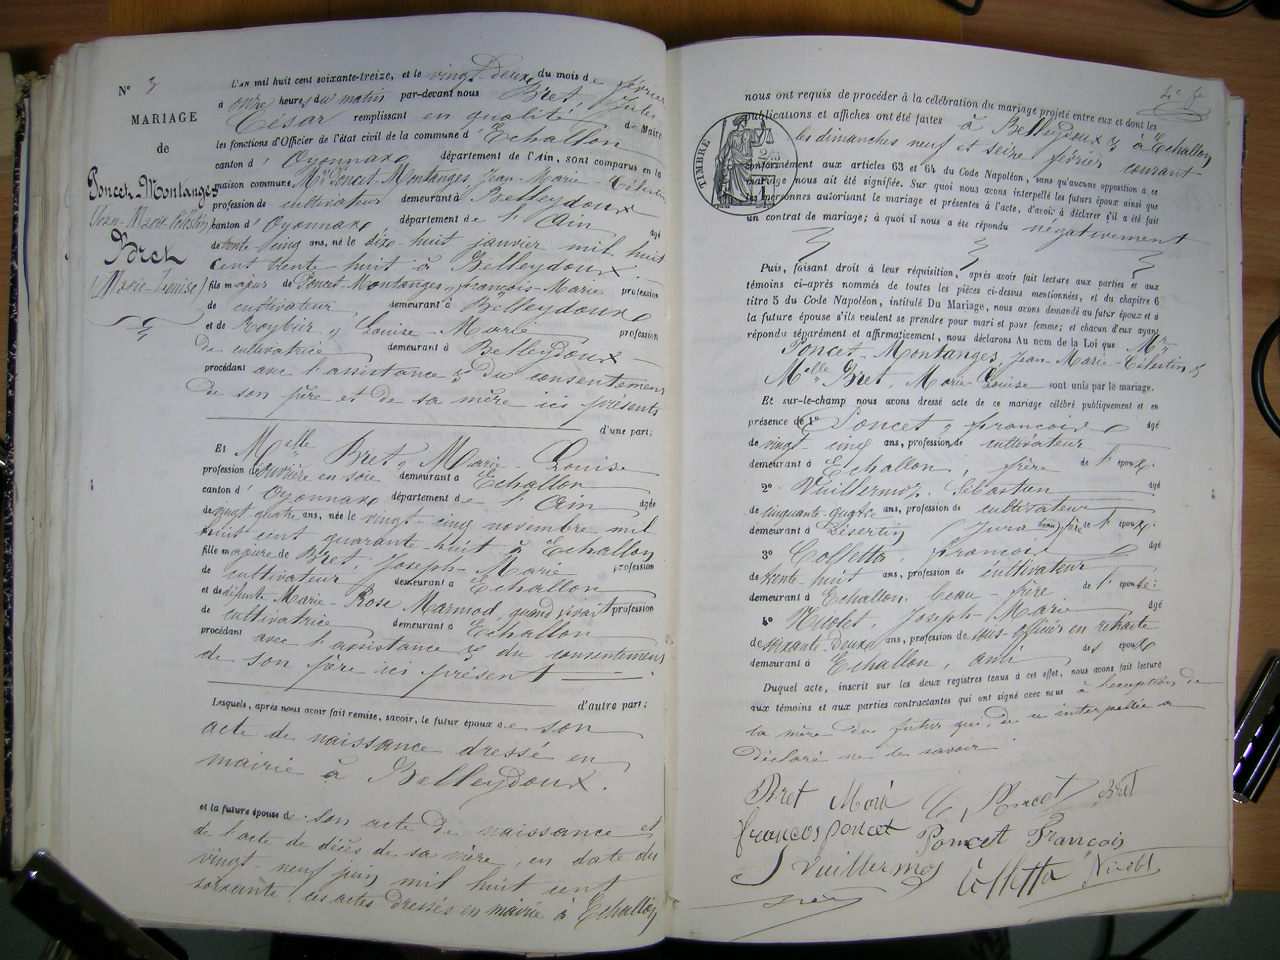 N° 3
MARIAGE
de
Poncet-Montanges
(Jean-Marie-Célestin)
Bret
(Marie-Louise)
L'AN mil huit cent soixante-treize, et le vingt-Deux du mois de février
à onze heures du matin par-devant nous Bret, Jules
César remplissant en qualité de Maire
les fonctions d'Officier de l'état civil de la commune d' Echallon
canton d' Oyonnax, département de l'Ain, sont comparus en la
maison commune Mr Poncet-Montanges, Jean-Marie-Célestin
profession de cultivateur demeurant à Belleydoux
canton d' Oyonnax département de l'Ain âgé
de trente cinq ans, né le dix-huit janvier mil huit
cent trente huit à Belleydoux
fils majeur de Poncet-Montanges, françois-Marie profession
de cultivateur, demeurant à Belleydoux
et de Roybier, Louise-Marie profession
De cultivatrice demeurant à Belleydoux
procédant avec l'assistance & du consentement
de son père et de sa mère ici présents
d'une part;
Et Melle Bret, Marie-Louise
profession d'ouvrière en soie demeurant à Echallon
canton d' Oyonnax département de l'Ain âgée
de vingt quatre ans, née le vingt-cinq novembre mil
huit cent quarante-huit à Echallon
fille majeure de Bret, Joseph-Marie profession
de cultivateur demeurant à Echallon
et de défunte Marie-Rose Marmod, quand vivait profession
de cultivatrice demeurant à Echallon
procédant avec l'assistance & du consentement
de son père ici présent
d'autre part;
Lesquels, après nous avoir fait remise, savoir, le futur époux de son
acte de naissance dressé en
mairie à Belleydoux.
et la future épouse de son acte de naissance et
de l'acte de décès de sa mère, en date du
vingt neuf juin mil huit cent
soixante, ces actes dressés en mairie à Echallon
nous ont requis de procéder à la célébration du mariage projeté entre eux et dont les
publications et affiches ont été faites à Belleydoux & à Echallon
les dimanches neuf et seize février courant
TIMBRE
conformément aux articles 63 et 64 du Code Napoléon, sans qu'aucune opposition à ce
mariage nous ait été signifiée. Sur quoi nous avons interpellé les futurs époux ainsi que
les personnes autorisant le mariage et présentes à l'acte, d'avoir à déclarer s'il a été fait
un contrat de mariage; à quoi il nous a été répondu négativement
Puis, faisant droit à leur réquisition, après avoir fait lecture aux parties et aux
témoins ci-après nommés de toutes les pièces ci-dessus mentionnées, et du chapitre 6
titre 5 du Code Napoléon, intitulé Du Mariage, nous avons demandé au futur époux et à
la future épouse s'ils veulent se prendre pour mari et pour femme; et chacun d'eux ayant
répondu séparément et affirmativement, nous déclarons Au nom de la Loi que Mr
Poncet-Montanges, Jean-Marie-Célestin &
Melle Bret, Marie-Louise sont unis par le mariage.
Et sur-le-champ nous avons dressé acte de ce mariage célébré publiquement et en
présence de 1° Poncet, françois âgé
de vingt-cinq ans, profession de cultivateur
demeurant à Echallon, frère de l' époux.
2° Vuillermoz, Sébastien âgé
de cinquante-quatre ans, profession de cultivateur
demeurant à (Jura) beau-frère de l' époux.
3° Coffetta, françois âgé
de trente-huit ans, profession de cultivateur
demeurant à Echallon, beau-frère de l' épouse.
4° Nicolet, Joseph-Marie âgé
de soixante-Deux ans, profession de sous-officier en retraite
demeurant à Echallon, ami des époux
Duquel acte, inscrit sur les deux registres tenus à cet effet, nous avons fait lecture
aux témoins et aux parties contractantes qui ont signé avec nous à l'exception de
la mère du futur qui, de ce interpellée a
déclaré ne le savoir.
Bret Mari C Poncet Bret
françois poncet Poncet François
S Vuillermoz Coffetta Nicolet